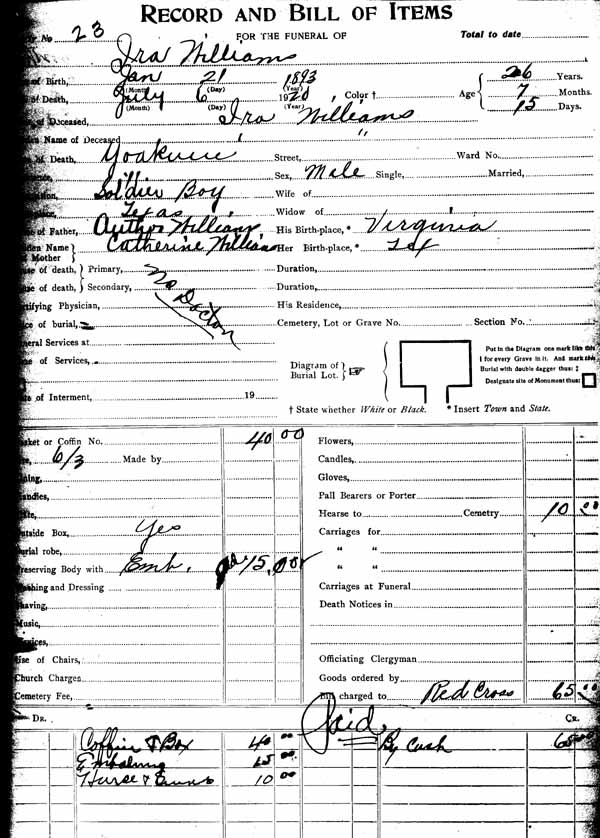 RECORD AND BILL OF ITEMS
No 23 FOR THE FUNERAL OF Total to date
Ira Williams
of Birth, Jan 21 1893 26 Years.
(Month) (Day) (Year)
of Death, July 6 1920 Color † Age 7 Months.
(Month) (Day) (Year) 15 Days.
of Deceased, Ira Williams
Name of Deceased "
of Death, Street, Ward No.
Sex, Male Single, Married,
Soldier Boy Wife of
Texas Widow of
of Father, Author Williams His Birth-place, * Virginia
Name of Mother Catherine Williams Her Birth-place, *
of death, Primary, No Doctor Duration,
of death, Secondary, Duration,
Physician, His Residence,
of burial, Cemetery, Lot or Grave No. Section No.
Services at
of Services, Diagram of Burial Lot.
Put in the Diagram one mark like this
I for every Grave in it. And mark
Burial with double dagger thus: ‡
Designate site of Monument thus:
of Interment, 19
† State whether White or Black. * Insert Town and State.
or Coffin No. 40 00 Flowers,
6/3 Made by Candles,
Gloves,
Pall Bearers or Porter
Hearse to Cemetry 10 00
Outside Box, Yes Carriages for
Burial robe, " "
Preserving Body with Emb. 15,00 " "
and Dressing Carriages at Funeral
Death Notices in
Music,
Use of Chairs, Officiating Clergyman
Church Charges Goods ordered by
Cemetery Fee, Bill charged to Red Cross 65 00
DR. Paid CR.
Coffin & Box 40 00 By Cash 65 00
Embalming 15 00
10 00